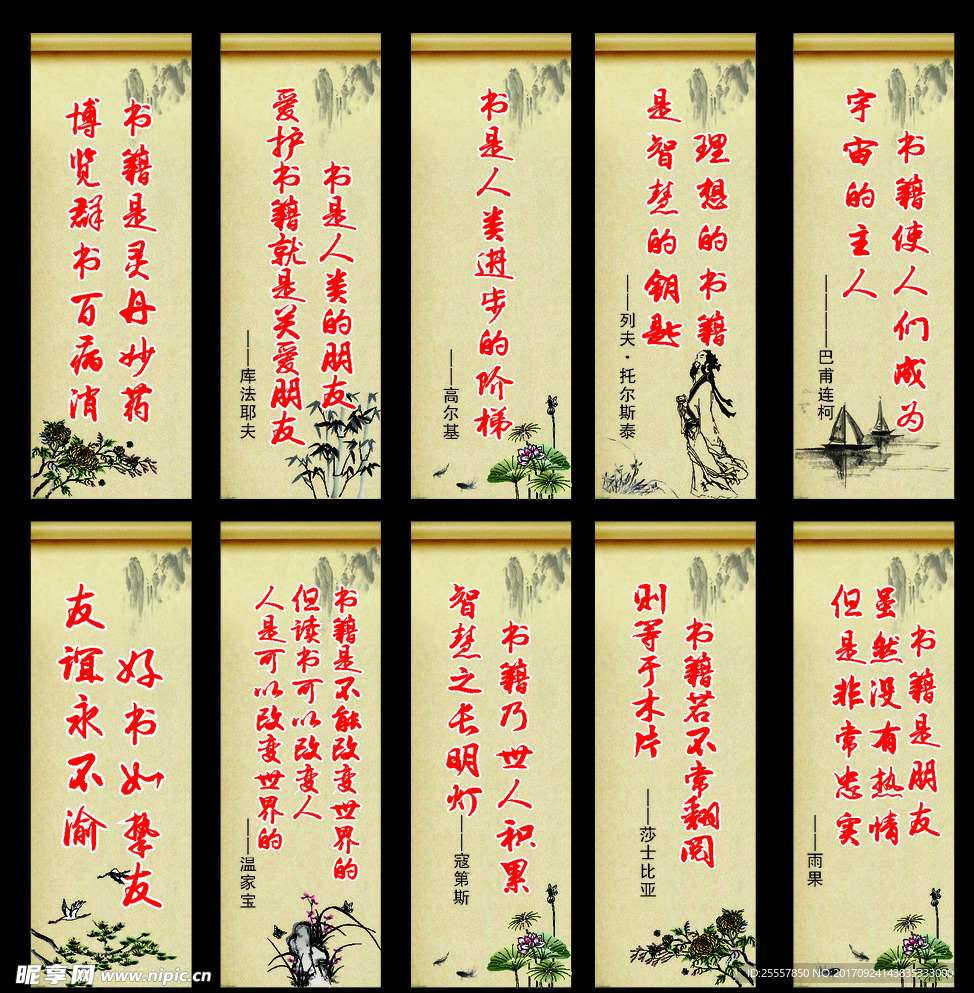 书籍是灵丹妙药
博览群书百病消
书是人类的朋友
爱护书籍就是关爱朋友
——库法耶夫
书是人类进步的阶梯
——高尔基
理想的书籍
是智慧的钥匙
——列夫·托尔斯泰
书籍使人们成为
宇宙的主人
————巴甫连柯
好书如挚友
友谊永不渝
书籍是不能改变世界的
但读书可以改变人
人是可以改变世界的
——温家宝
书籍乃世人积累
智慧之长明灯
——寇第斯
书籍若不常翻阅
则等于木片
——莎士比亚
书籍是朋友
虽然没有热情
但是非常忠实
——雨果
昵享网 www.nipic.cn
ID:25557850 NO:20170924143835333000